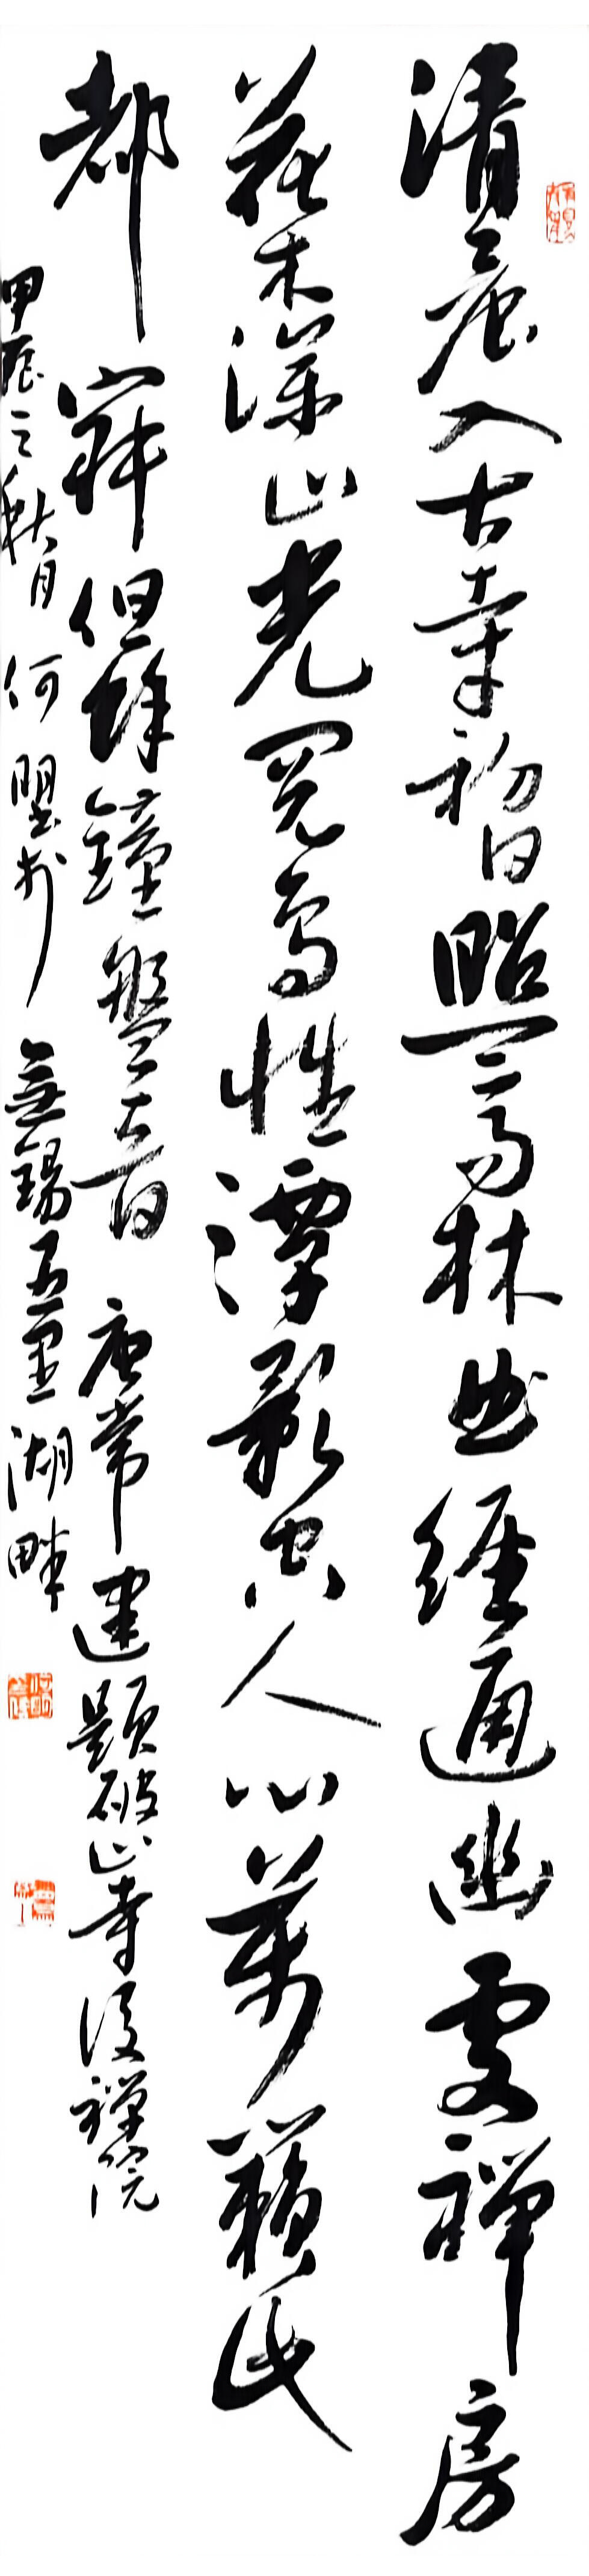 清晨入古寺初日照高林曲径通幽處禅房
花木深山光悦鸟性潭影空人心萬籟此
都寂但餘鐘磬音 唐常建題破山寺後禅院
甲辰之秋月何壁於無錫五里湖畔